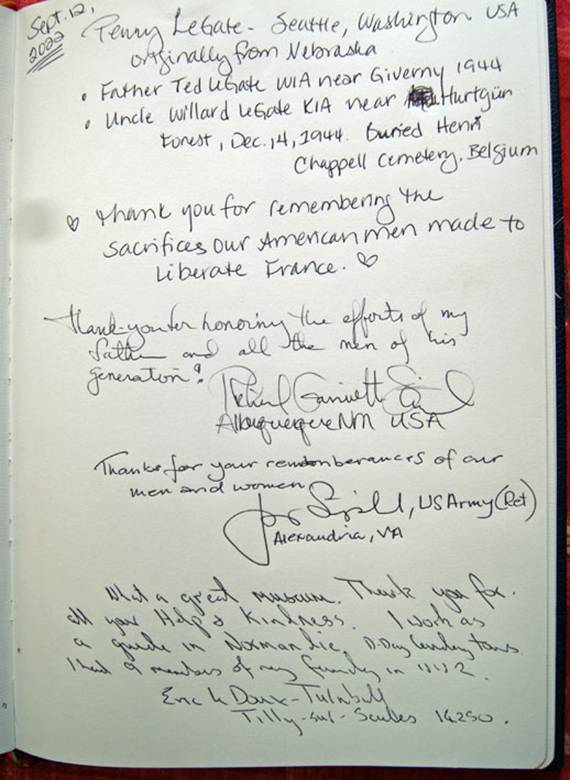 Sept. 12,
2022
Penny LeGate - Seattle, Washington USA
originally from Nebraska
• Father Ted LeGate WIA near Giverny 1944
• Uncle Willard LeGate KIA near Hurtgün
Forest, Dec. 14, 1944. Buried Henri
Chappell Cemetery, Belgium
♡ thank you for remembering the
sacrifices our American men made to
liberate France. ♡
Thank-you for honoring the efforts of my
father and all the men of his
generation!
Richard Garriott
Albuquerque NM USA
Thanks for your rememberances of our
men and women
US Army (Ret)
Alexandria, VA
What a great museum. Thank you for.
all your Help & Kindness. I work as
a guide in Normandie, D.Day Landing tours
I had 9 members of my family in WW2.
Eric le Doux-Turnbull
Tilly-sur-Seulles 14250.